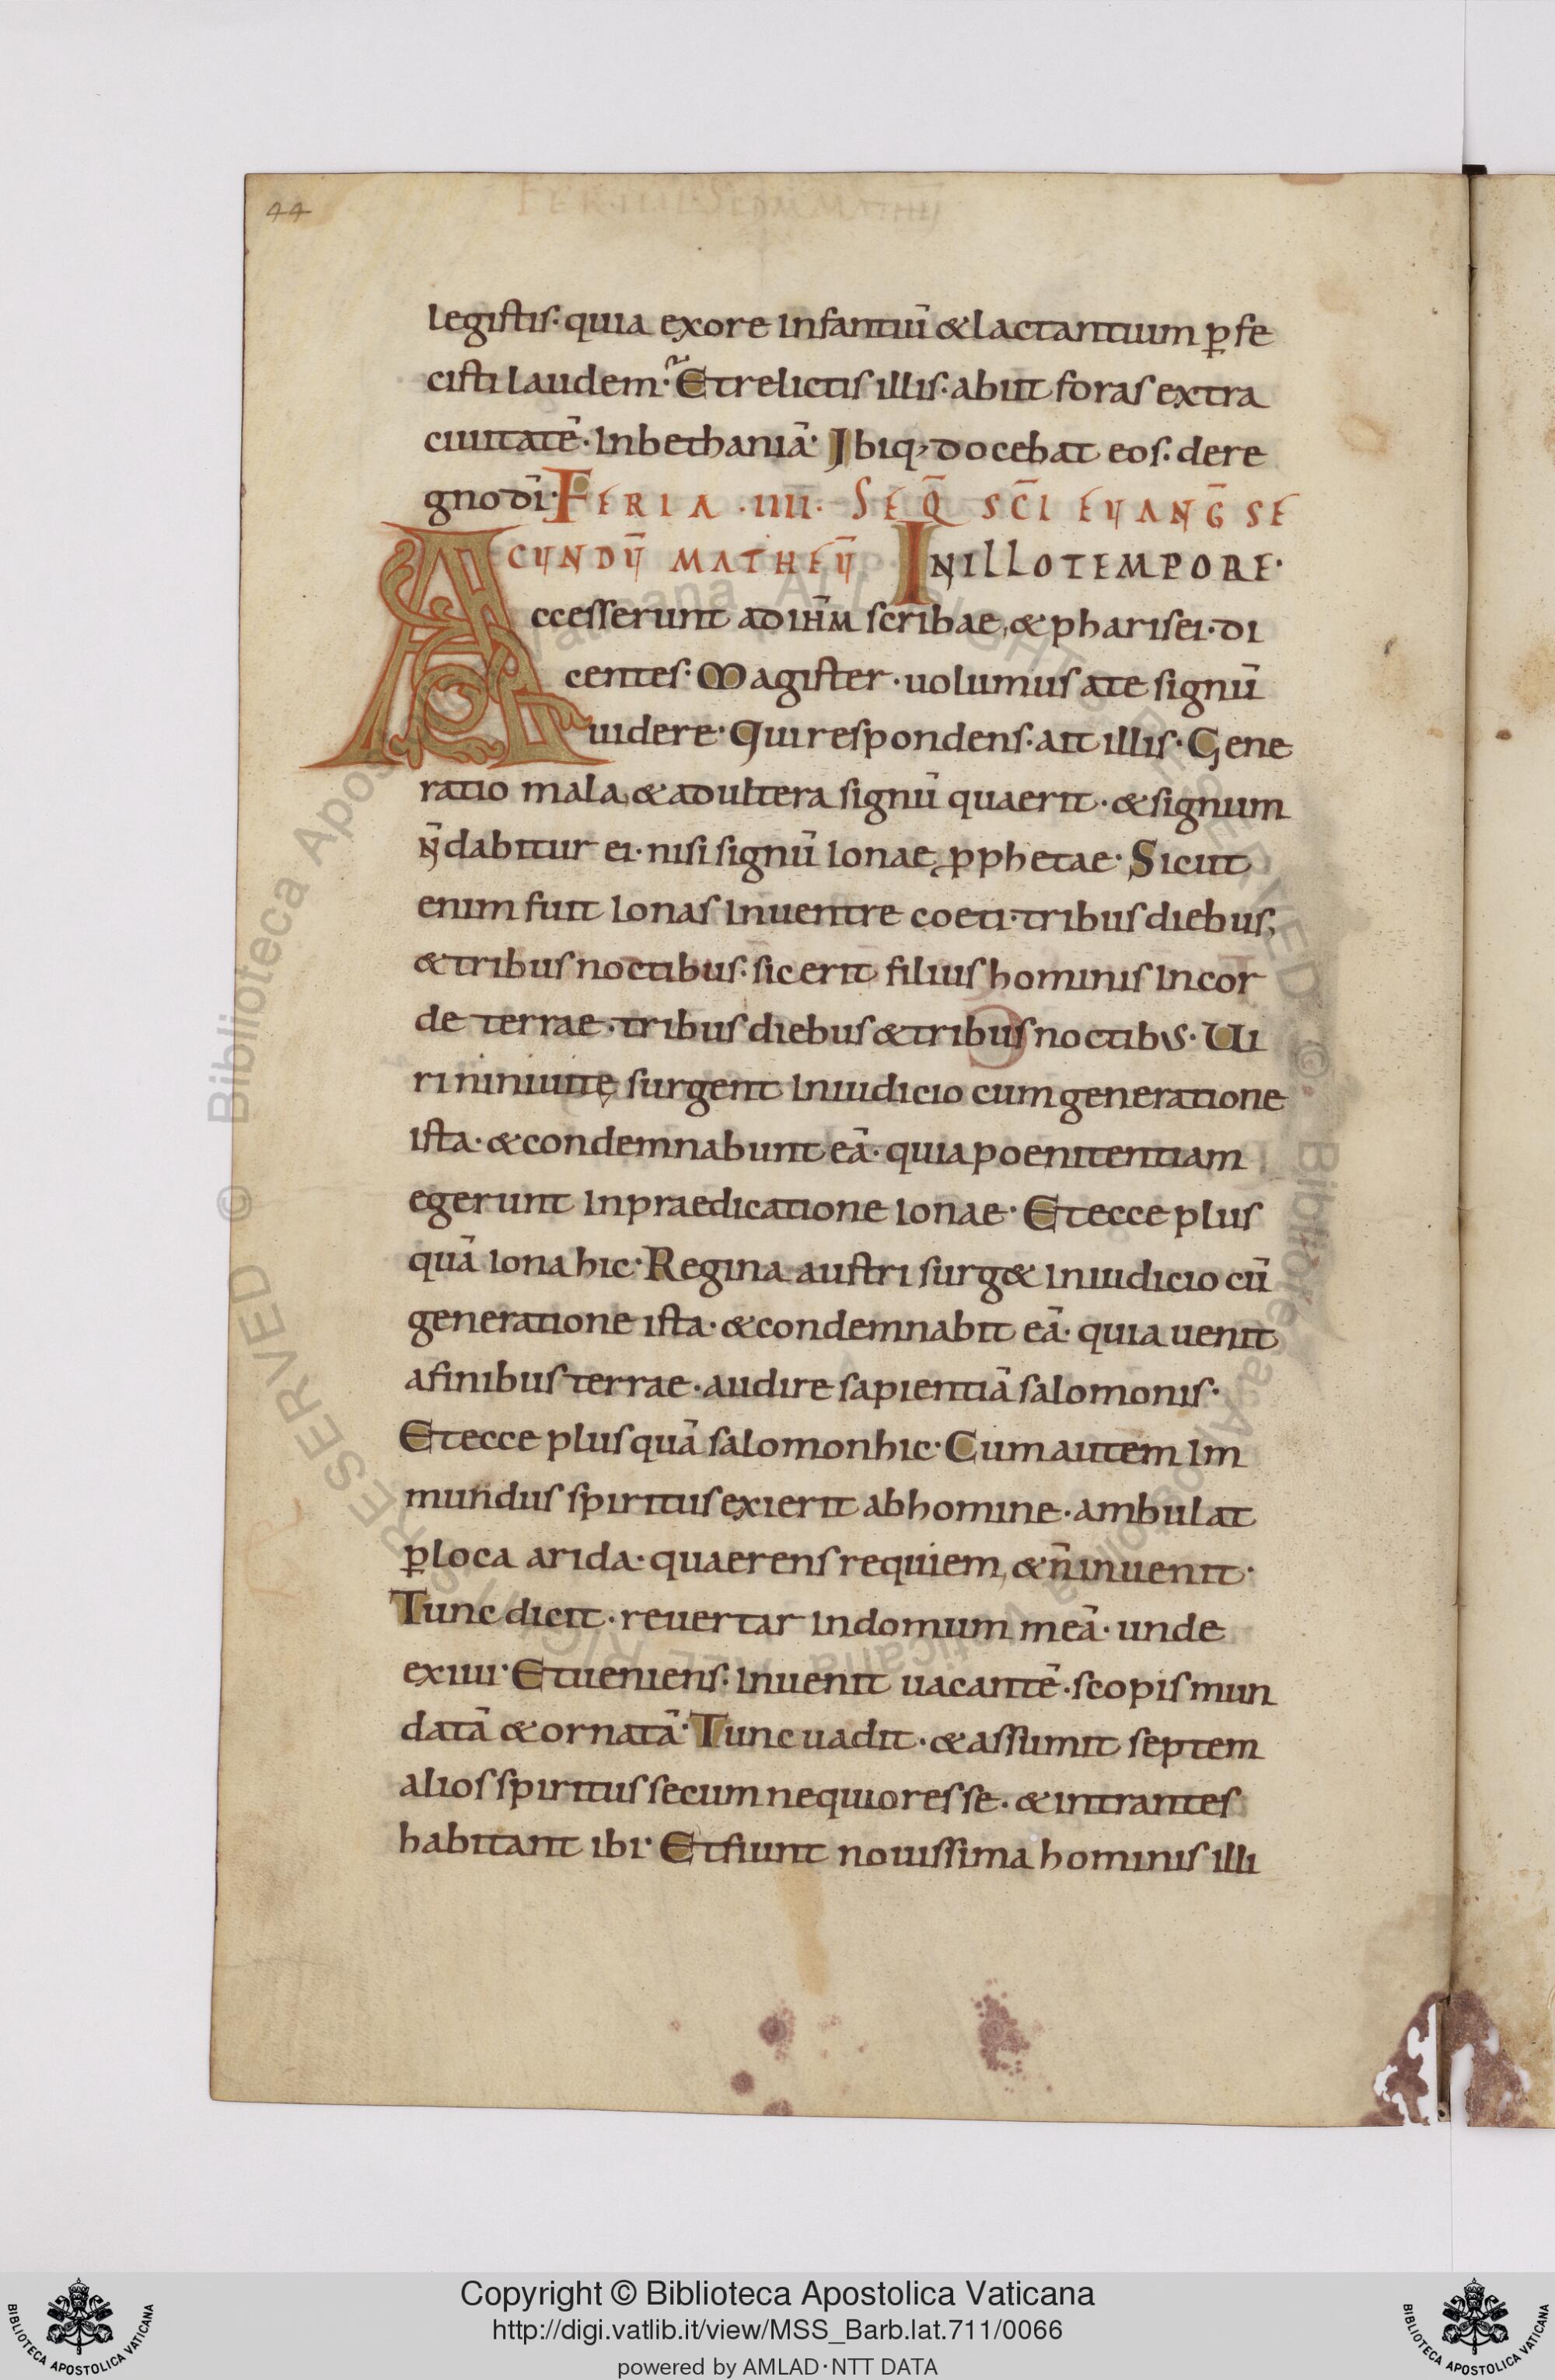 44
FER·IIII·SCDM MATHEŪ
legistis· quia exore infantiū &lactantium ꝑfe
cisti laudem· Et relictis illis· abiit foras extra
ciuitatē· inbethaniā· Ibiq; docebat eos· dere
gno dī· FERIA ·IIII· SEQ̄ SC̄I EUANḠ SE
CUNDŪ MATHEŪ INILLOTEMPORE·
Accesserunt ad ih̄m scribae, &pharisei· di
centes· Magister· uolumus ate signū
uidere· Qui respondens· ait illis· Gene
ratio mala, &adultera signū quaerit· &signum
n̄ dabitur ei· nisi signū ionae, ꝓphetae· Sicut
enim fuit ionas inuentre coeti· tribus diebus,
&tribus noctibus· sic erit filius hominis incor
de terrae· tribus diebus &tribus noctibus· Ui
ri niniuitę surgent iniudicio cum generatione
ista· &condemnabunt eā· quia poenitentiam
egerunt inpraedicatione ionae· Et ecce plus
quā iona hic· Regina austri surg& iniudicio cū
generatione ista· &condemnabit eā· quia uenit
afinibus terrae· audire sapientiā salomonis·
Et ecce plus quā salomon hic· Cum autem im
mundus spiritus exierit abhomine· ambulat
ꝑ loca arida· quaerens requiem, &n̄ inuenit·
Tunc dicit· reuertar indomum meā· unde
exiui· Et ueniens· inuenit uacantē· scopis mun
datā &ornatā· Tunc uadit· &assumit septem
alios spiritus secum nequiores se· &intrantes
habitant ibi· Et fiunt nouissima hominis illi
© Biblioteca Apostolica Vaticana ALL RIGHTS RESERVED
© Biblioteca Apostolica Vaticana ALL RIGHTS RESERVED
Copyright © Biblioteca Apostolica Vaticana
http://digi.vatlib.it/view/MSS_Barb.lat.711/0066
powered by AMLAD·NTT DATA
BIBLIOTECA APOSTOLICA VATICANA
BIBLIOTECA APOSTOLICA VATICANA